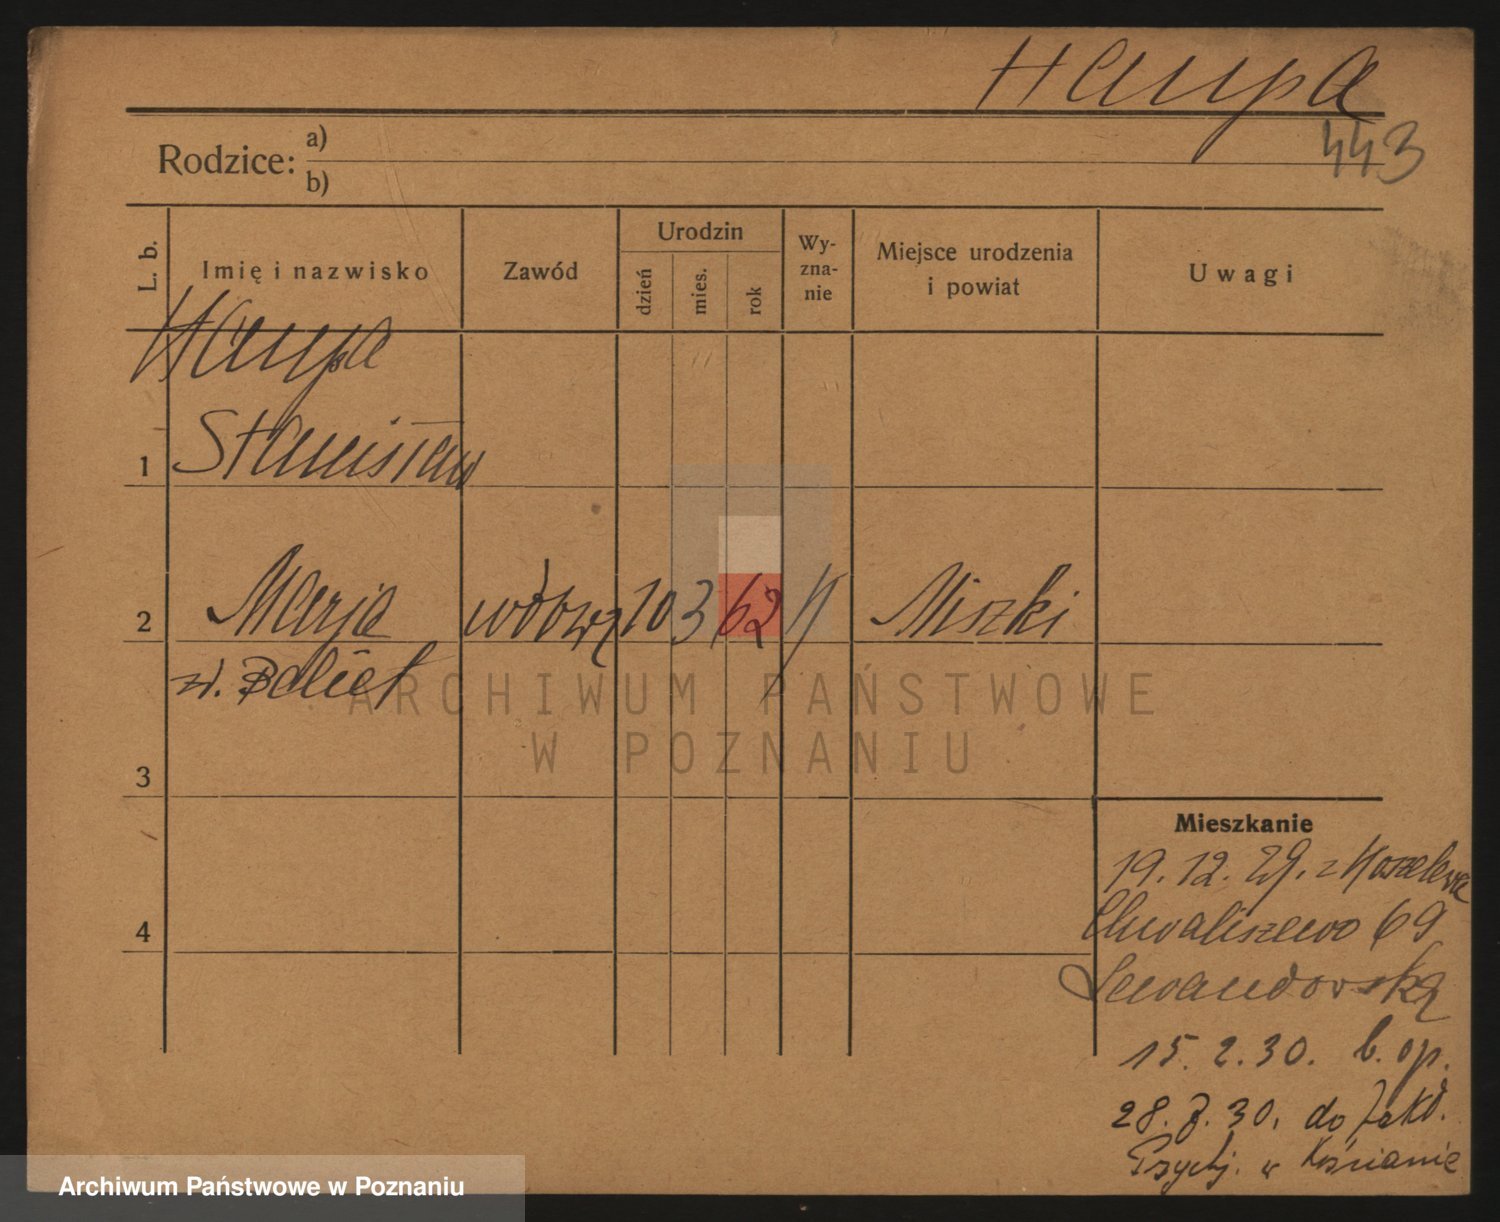 Haupa
443
Rodzice: a)
b)
L. b.
Imię i nazwisko
Zawód
Urodzin
dzień
mies.
rok
Wy-
zna-
nie
Miejsce urodzenia
i powiat
Uwagi
Haupa
1 Stanisław
2 Marja wdową 10 3 62 Niszki
zd.
3
4
Mieszkanie
19. 12. 29. z
Chwaliszewo 69
Lewandowską
15. 2. 30. b. op.
28. 7. 30. do Zakł.
Psych. w Kościanie
ARCHIWUM PAŃSTWOWE
W POZNANIU
Archiwum Państwowe w Poznaniu